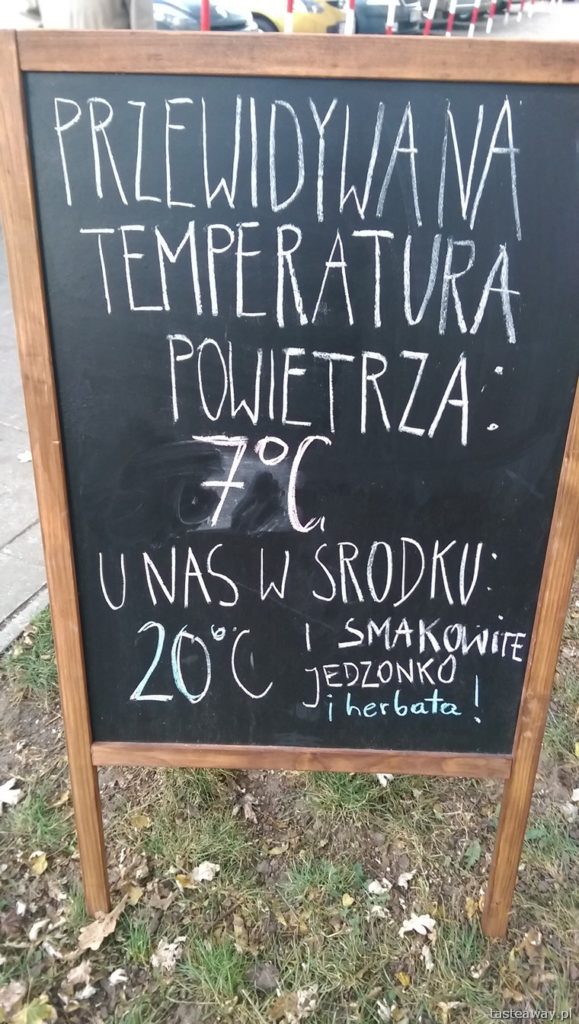 PRZEWIDYWANA
TEMPERATURA
POWIETRZA:
7°C
U NAS W SRODKU:
20°C I SMAKOWITE
JEDZONKO
i herbata!
tasteaway.pl